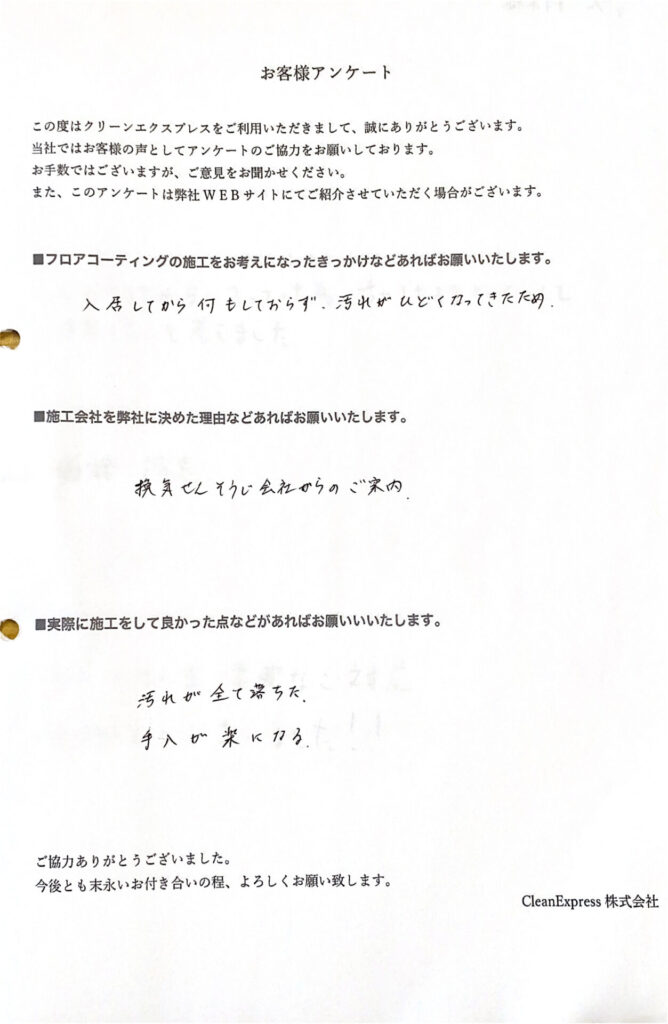 お客様アンケート
この度はクリーンエクスプレスをご利用いただきまして、誠にありがとうございます。
当社ではお客様の声としてアンケートのご協力をお願いしております。
お手数ではございますが、ご意見をお聞かせください。
また、このアンケートは弊社WEBサイトにてご紹介させていただく場合がございます。
■フロアコーティングの施工をお考えになったきっかけなどあればお願いいたします。
入居してから何もしておらず、汚れがひどくなってきたため.
■施工会社を弊社に決めた理由などあればお願いいたします。
換気せんそうじ会社からのご案内.
■実際に施工をして良かった点などがあればお願いいいたします。
汚れが全て落ちた.
手入が楽になる.
ご協力ありがとうございました。
今後とも末永いお付き合いの程、よろしくお願い致します。
CleanExpress 株式会社